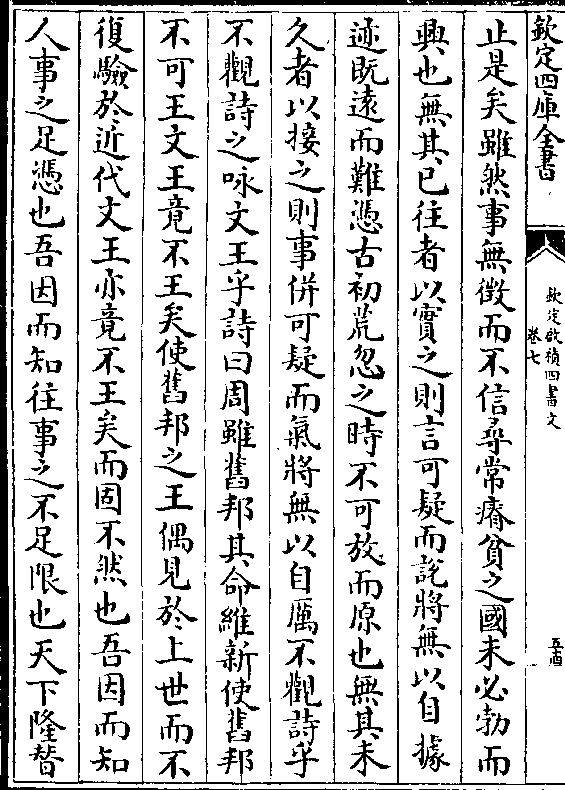 欽定四庫全書
欽定啟禎四書文
卷七
止是矣雖然事無徴而不信尋常瘠貧之國未必勃而
興也無其已往者以實之則言可疑而說將無以自據
迹既遠而難憑古初荒忽之時不可放而原也無其未
久者以接之則事併可疑而氣將無以自厲不觀詩乎
不觀詩之咏文王乎詩曰周雖舊邦其命維新使舊邦
不可王文王竟不王矣使舊邦之王偶見於上世而不
復驗於近代文王亦竟不王矣而固不然也吾因而知
人事之足憑也吾因而知往事之不足限也天下隆替